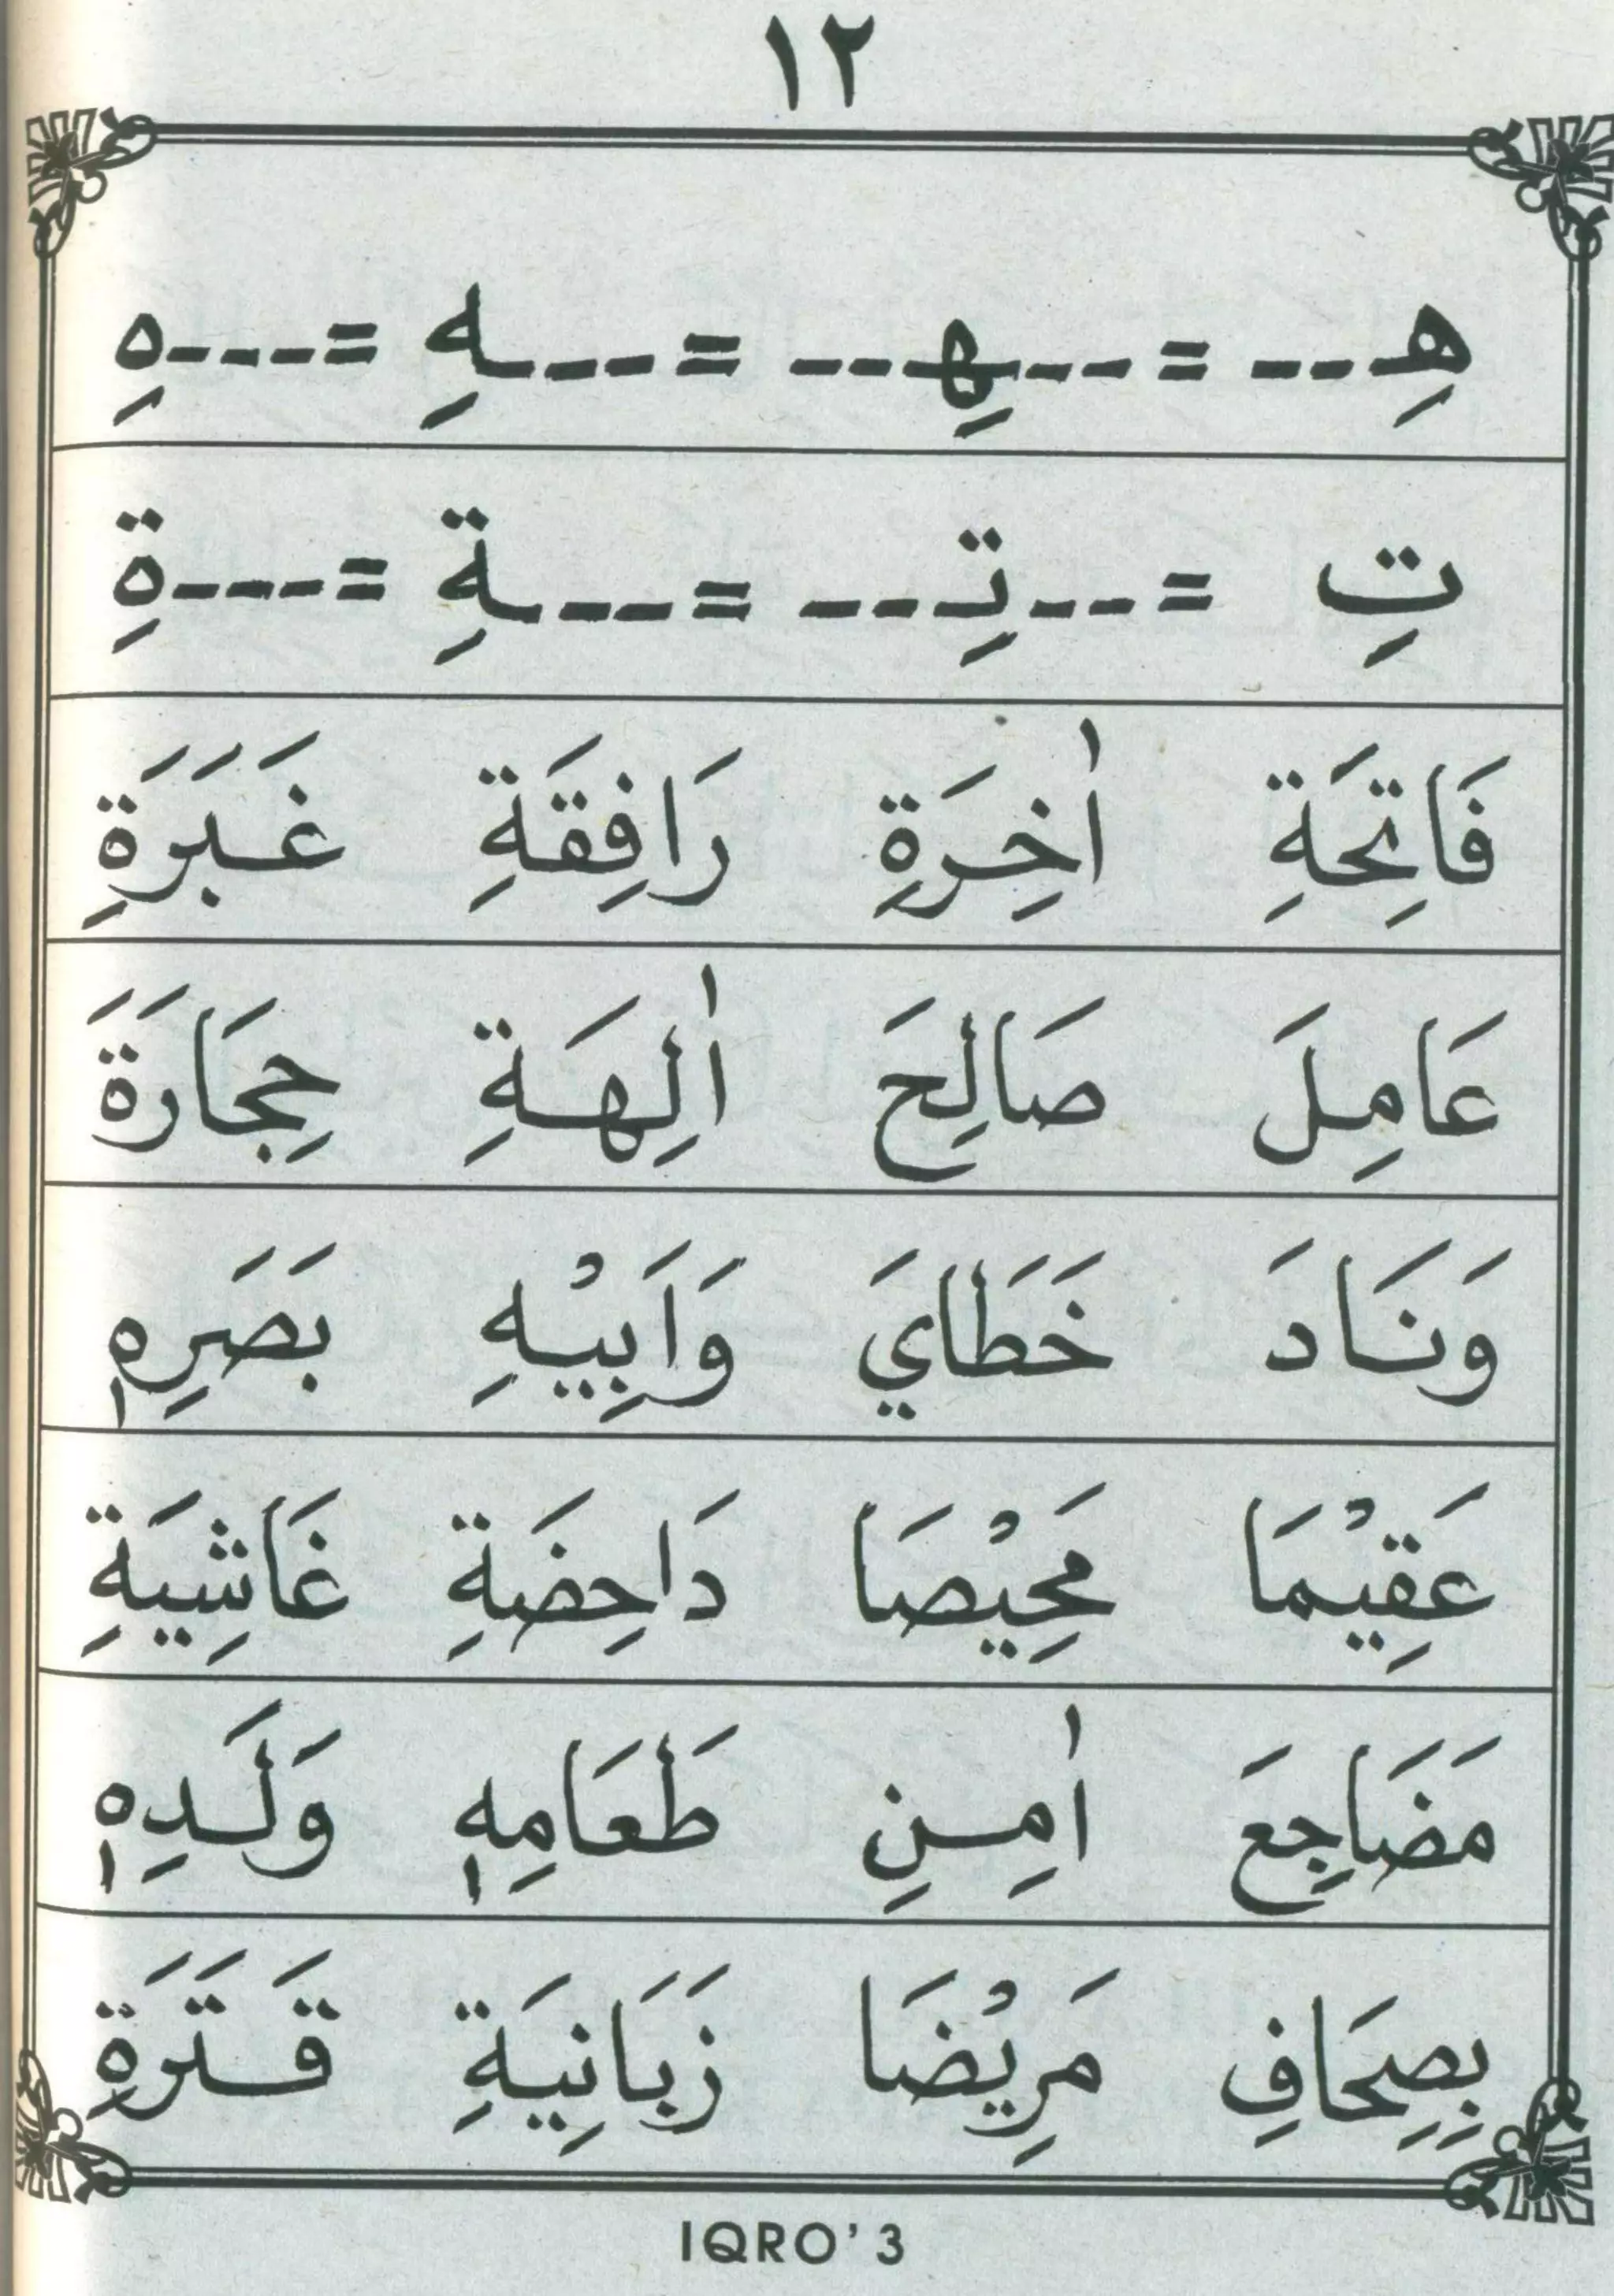 ١٢
هِـ--- = ---ـهِـ--- = ---ـهِ = ----هِ
تِ = ---ـتِـ--- = ---ـةِ = ----ةِ
فَاتِحَةِ اٰخِرَةِ رَافِقَةِ غَبَرَةِ
عَامِلَ صَالِحَ اٰلِهَةِ حِجَارَةَ
وَنَادَ خَطَايَ وَاَبِيْهِ بَصَرِهٖ
عَقِيْمَا مَحِيْصَا دَاحِضَةِ غَاشِيَةِ
مَضَاجِعَ اٰمِنِ طَعَامِهٖ وَلَدِهٖ
بِصِحَافِ مَرِيْضَا زَبَانِيَةِ قَتَرَةِ
IQRO' 3